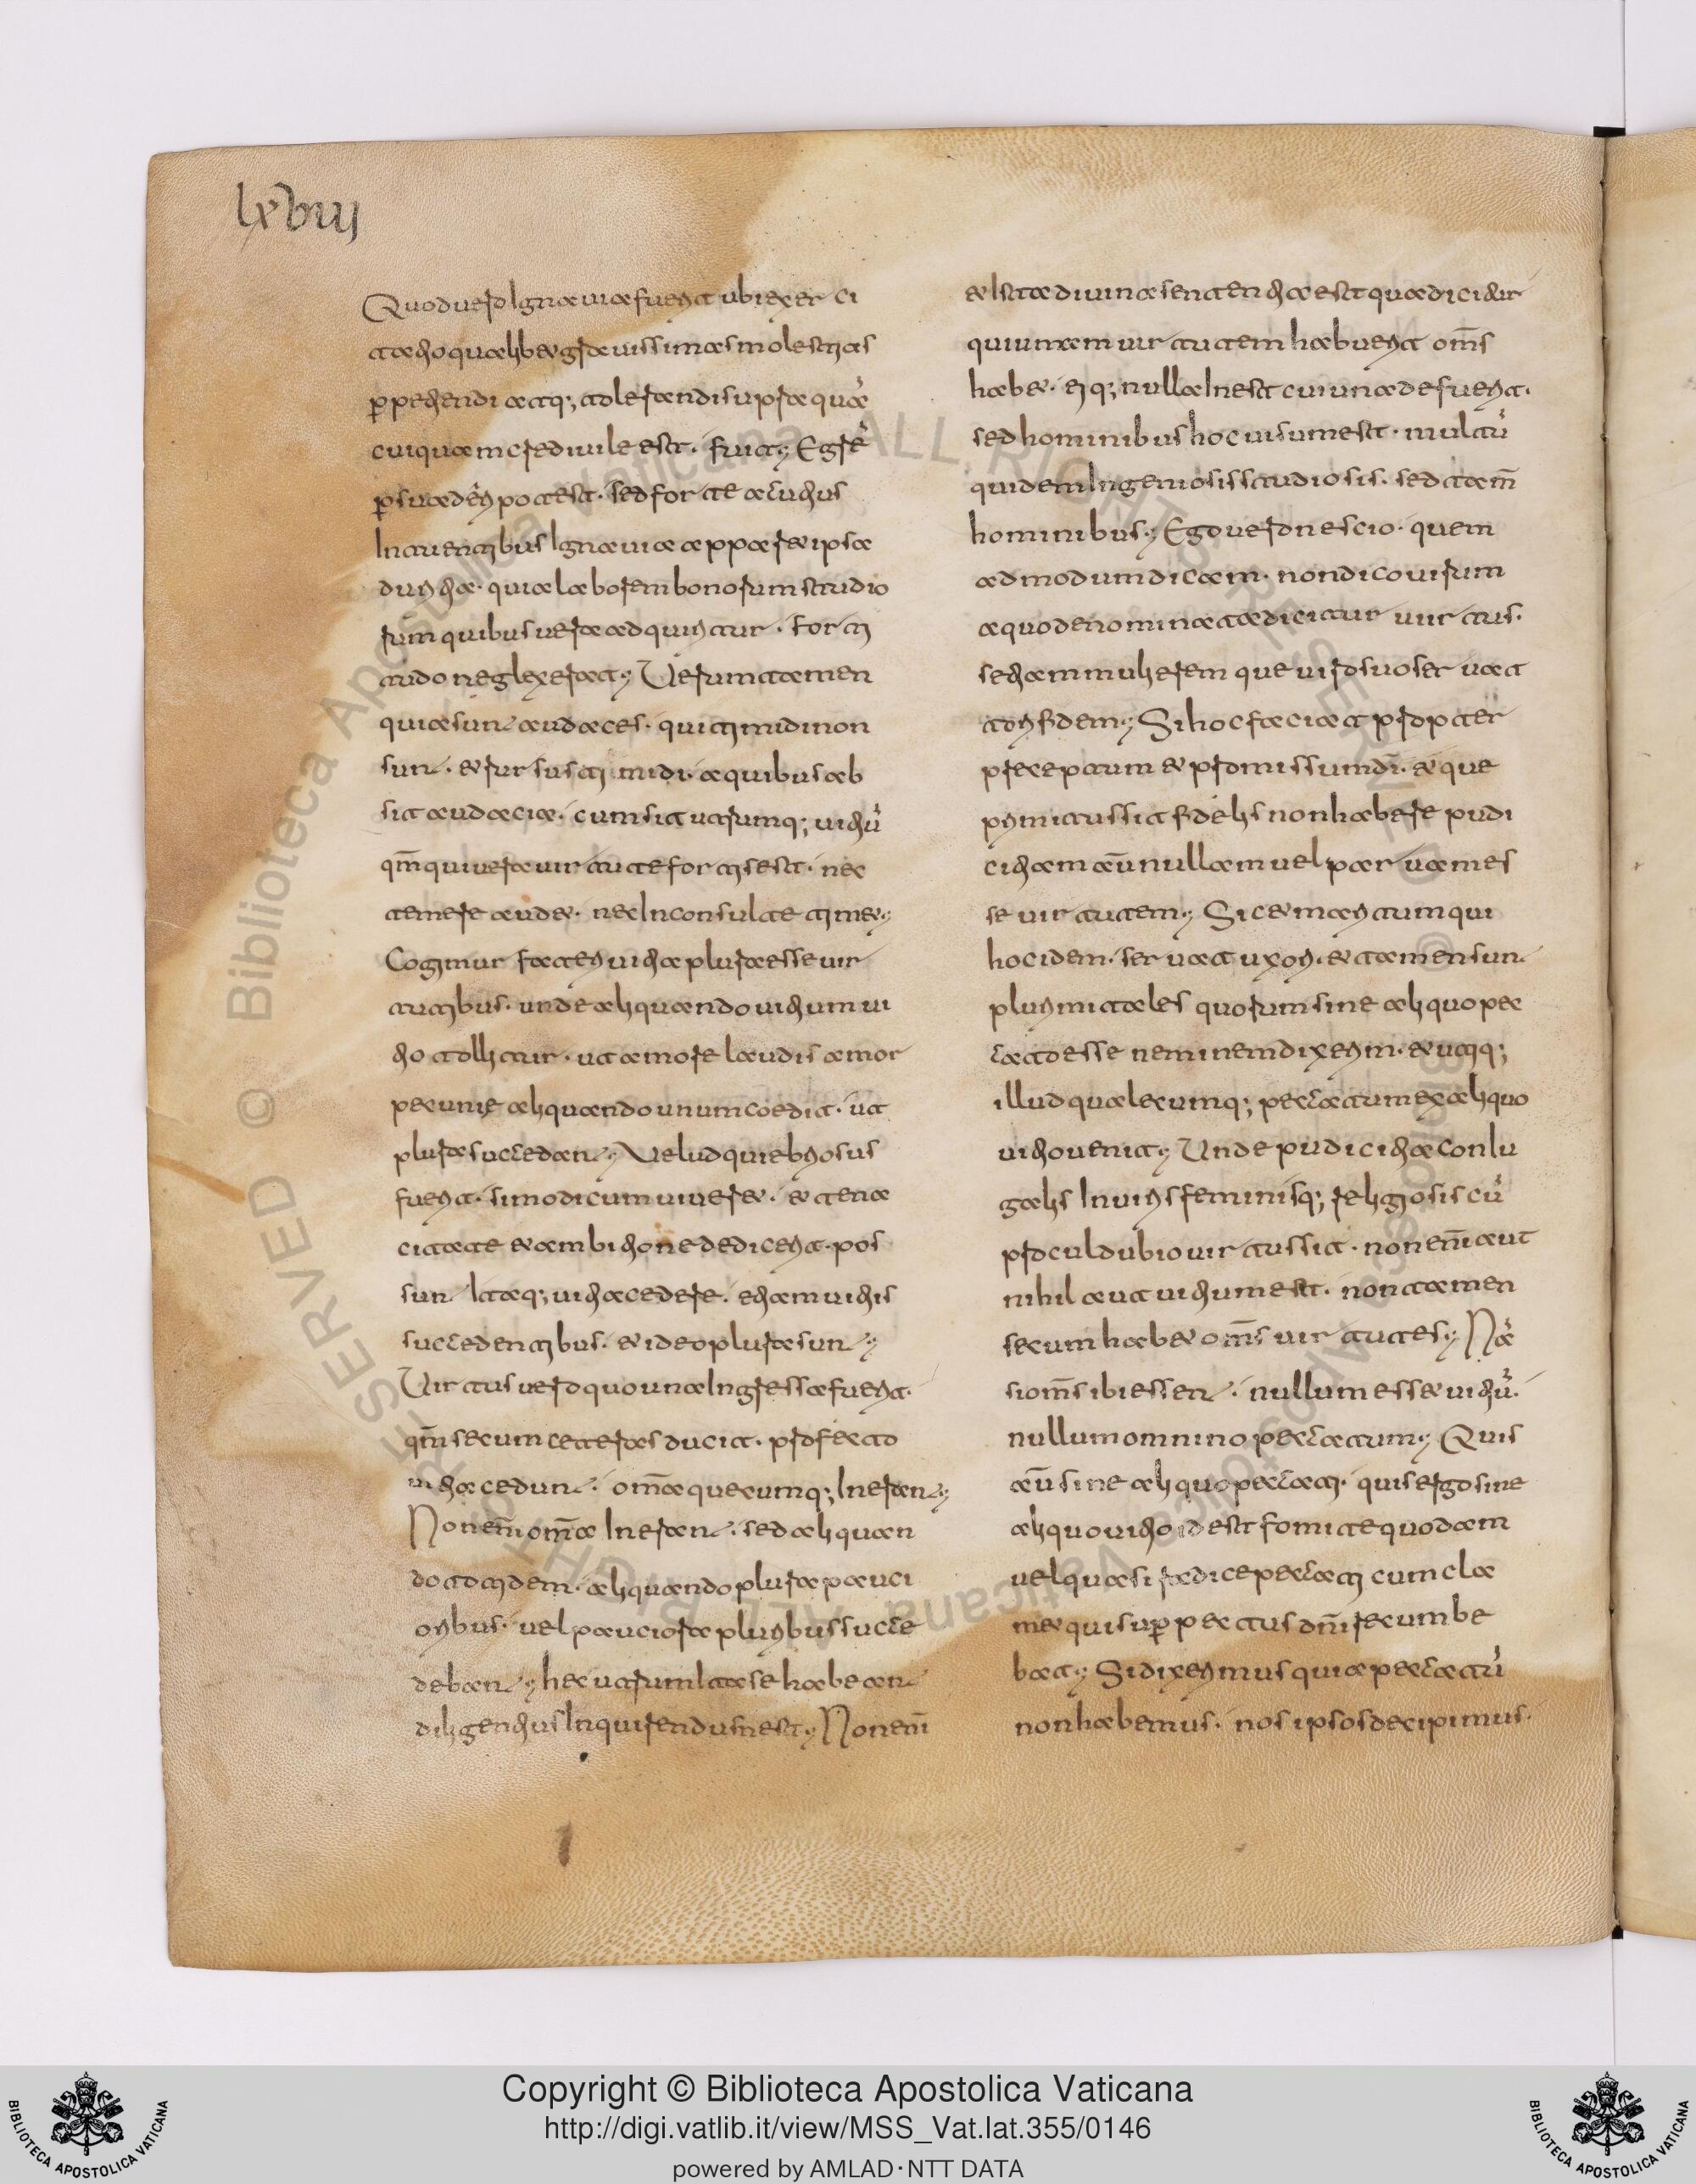 lxviii
Quod uero Ignauia fuerit ubi exerci
tatio quaelibet grauissimas molestias
perpetiendi atq; tolerandi supra quã
cuiquam credibile est. fruit; Egre
psuaderi potest. sed forte acutius
Intuentibus Ignauia apparet ipsa
duritia. quia laborem bonorum studio
rum quibus uera adquiritur. forti
tudo neglexerat; Verum tamen
quia sunt audaces. qui timidi non
sunt. et rursus timidi. a quibus ab
sit audacia. cum sit utrumq; uitiũ
qm̃ qui uera uirtute fortis est. nec
temere audet. nec Inconsulte timet;
Cogimur fateri uitia plura esse uir
tutibus. unde aliquando uitium ui
tio tollitur. ut amore laudis amor
pecunie aliquando unum cedit. ut
plura succedant; Velud qui ebriosus
fuerit. si modicum uiueret. et tena
citate et ambitione dedicerit. pos
sunt Itaq; uitia cedere. etiam uitiis
succedentibus. et ideo plura sunt;
Virtus uero quo una Ingressa fuerit.
qm̃ secum ceteras ducit. profecto
uitia cedunt. om̃a quecumq; Inerant;
Non enĩ om̃a Inerant. sed aliquan
do totidem. aliquando plura pauci
oribus. uel pauciora pluribus succe
debant; hec utrum Ita se habeant
diligentius Inquirendum est; Non enĩ
et Ista diuina sententia est qua dicitur
qui unam uirtutem habuerit om̃s
habet. eiq; nulla Inest cui una defuerit.
sed hominibus hoc uisum est. multũ
quidem Ingeniosis studiosis. sed tam̃
hominibus; Ego uero nescio. quem
admodum dicam. non dico uirum
a quo denominata dicitur uirtus.
setiam mulierem que uiro suo seruat
tori fidem; Si hoc faciat propter
preceptum et promissum dĩ. et que
primitus sit fidelis non habere pudi
citiam aũ nullam uel paruam es
se uirtutem; Sic et maritum qui
hoc idem. seruat uxori. et tamen sunt
plurimi tales quorum sine aliquo pec
cato esse neminem dixerim. et utiq;
illud qualecumq; peccatum ex aliquo
uitio uenit; Vnde pudicitia coniu
galis In uiris feminisq; religiosis cũ
procul dubio uirtus sit. non enĩ aut
nihil aut uitium est. non tamen
secum habet om̃s uirtutes; Nã
si om̃s ibi essent. nullum esset uitiũ.
nullum omnino peccatum; Quis
aũ sine aliquo peccati. quis ergo sine
aliquo uitio id est fomite quodam
uel quasi radice peccati cum cla
met qui sup pectus dñi recumbe
bat; Si dixerimus quia peccatũ
non habemus. nos ipsos decipimus.
Copyright © Biblioteca Apostolica Vaticana
http://digi.vatlib.it/view/MSS_Vat.lat.355/0146
powered by AMLAD·NTT DATA